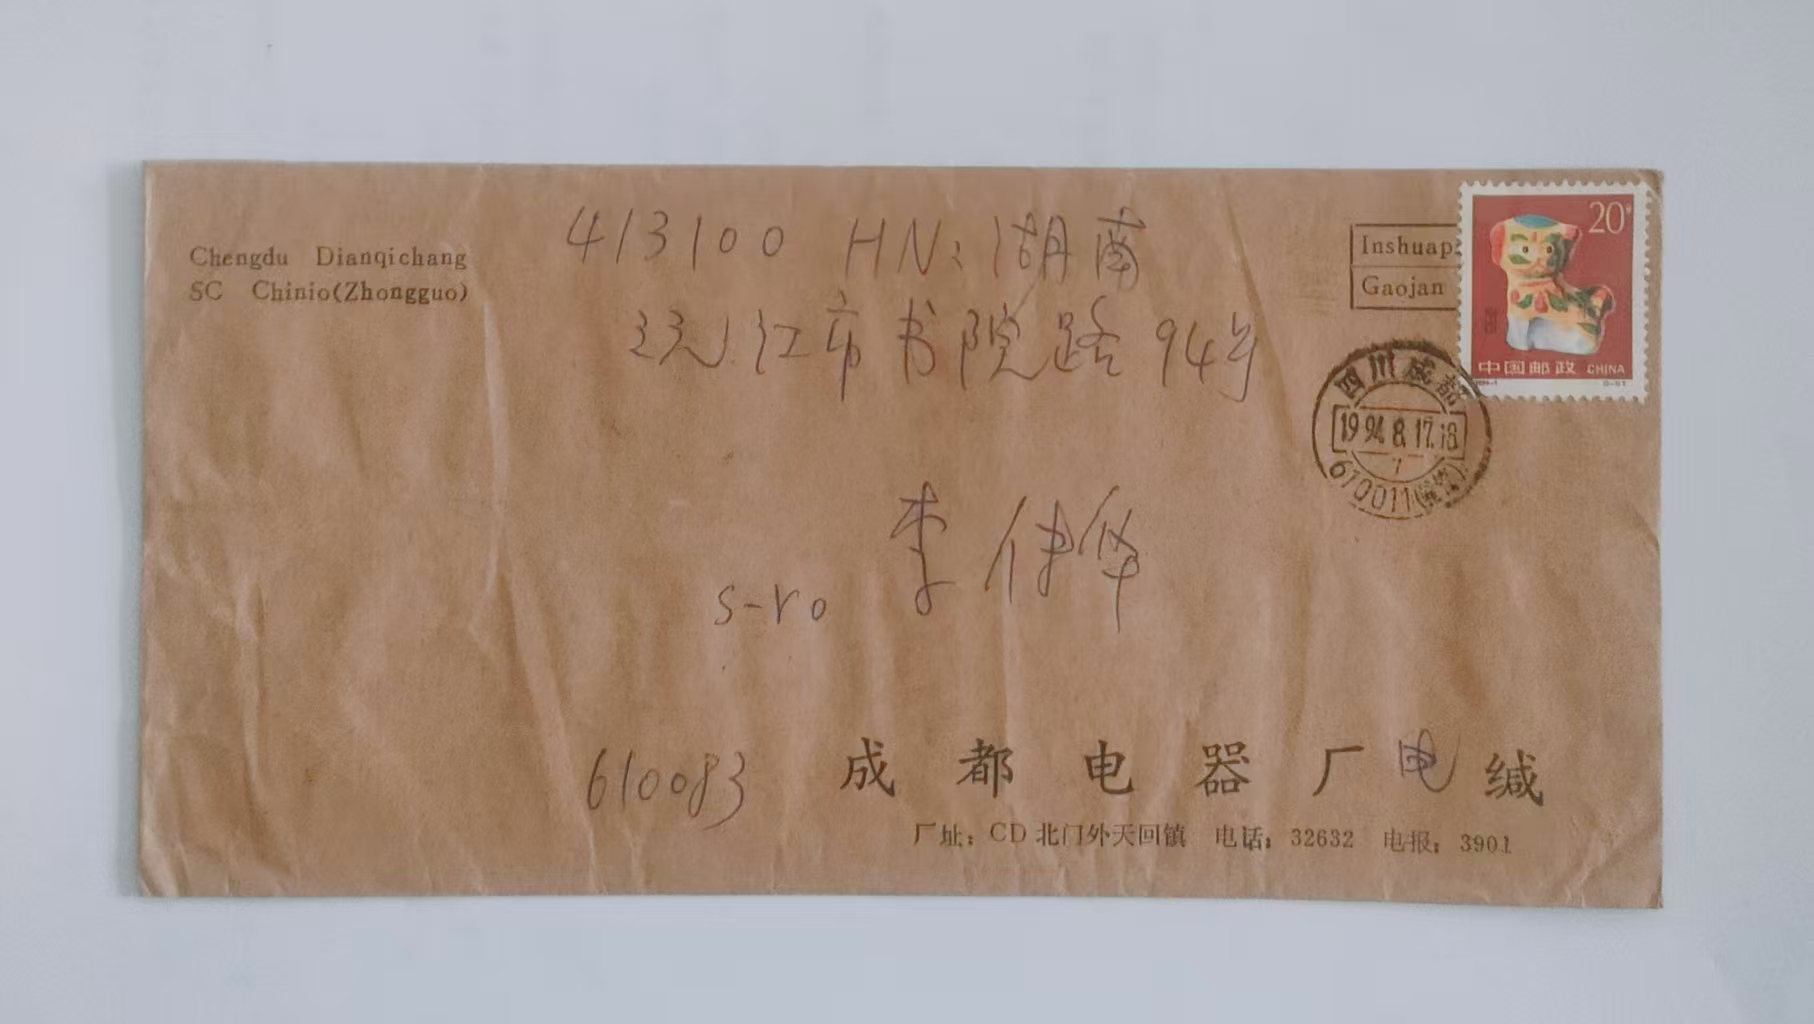 413100 HN:湖南
沅江市书院路94号
Chengdu Dianqichang
SC Chinio(Zhongguo)
Inshuap
Gaojan
20
中国邮政 CHINA
四川成都
1994.8.17.18
1
610011
李伟华
s-ro
610083 成都电器厂 缄
厂址：CD北门外天回镇 电话：32632 电报：3901